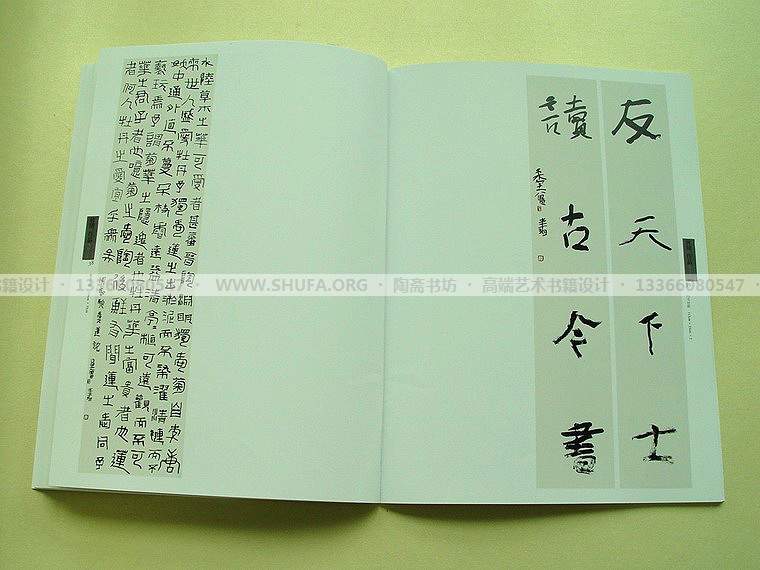 水陸草木之華可愛者甚蕃晉陶淵明獨愛菊自李唐
來世人盛愛牡丹予獨愛蓮之出淤泥而不染濯清漣而不
妖中通外直不蔓不枝香遠益清亭植可遠觀而不可
褻玩焉予謂菊華之隱逸者也牡丹華之富貴者也蓮
華之君子者也噫菊之愛陶後鮮有聞蓮之愛同予
者何人牡丹之愛宜乎衆矣
友天下士
讀古今书
书籍设计 · 13366080547 · WWW.SHUFA.ORG · 陶斋书坊 · 高端艺术书籍设计 · 13366080547 ·